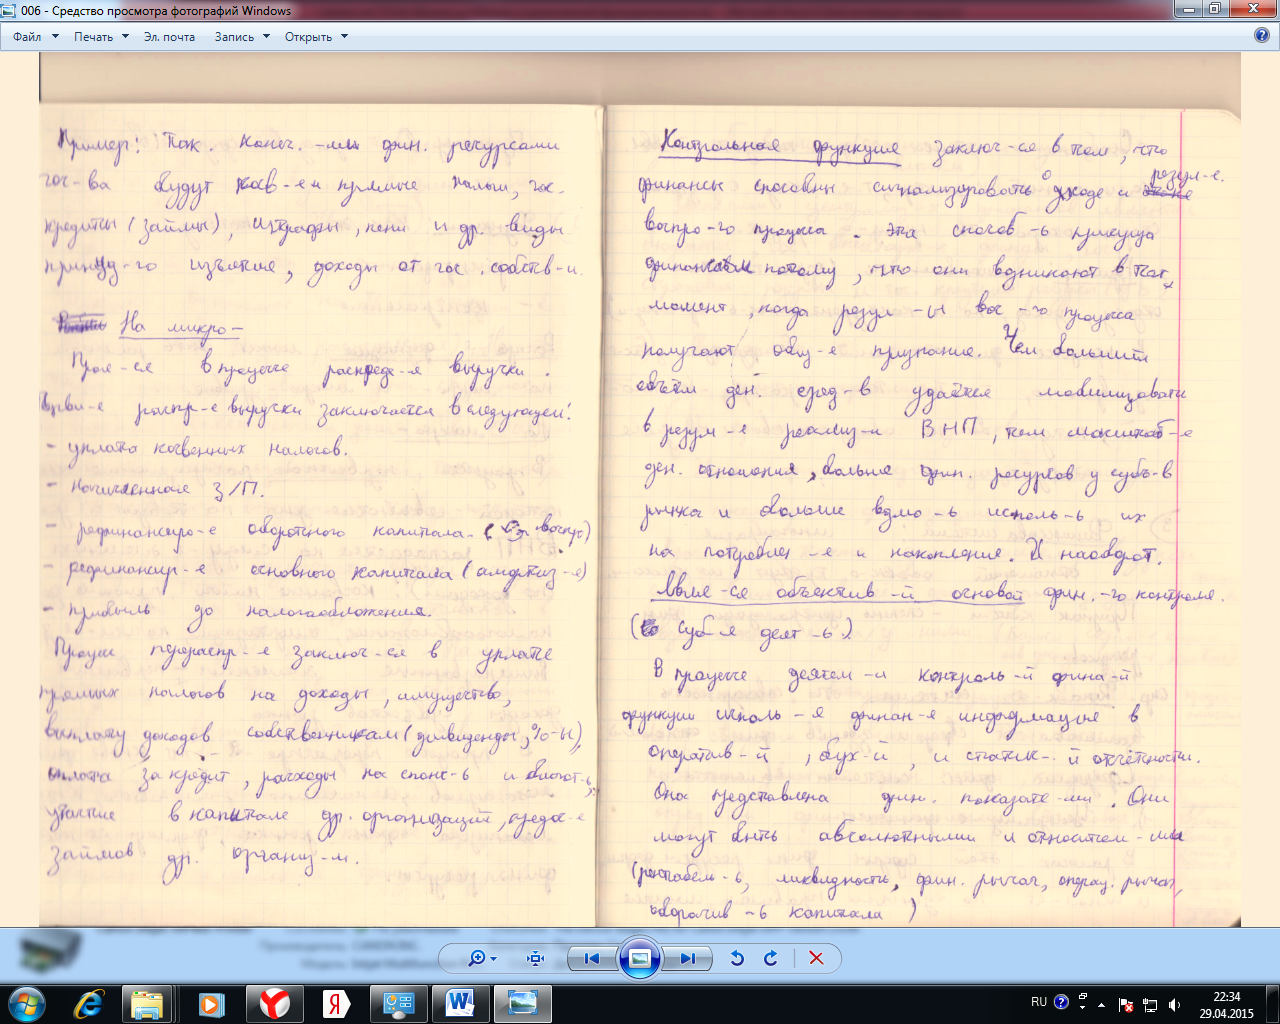 006 - Средство просмотра фотографий Windows
Файл Печать Эл. почта Запись Открыть
Пример: Так. конеч. -ми фин. ресурсами
гос-ва будут прямые налоги, гос.
кредиты (займы), штрафы, пени и др. виды
принуд-го изъятие, доходы от гос. собств-и.
На микро-
в процессе распреде-я выручки.
распр-е выручки заключается в следующем:
- уплата косвенных налогов.
- начисленная З/П.
- рефинансиро-е оборотного капитала
- рефинансир-е основного капитала (амортиз-я)
- прибыль до налогообложения.
Процесс перераспр-я заключ-ся в уплате
прямых налогов на доходы, имущество,
выплату доходов собственникам (дивиденды, %-ы),
оплата за кредит, расходы на спонс-ь и
участие в капитале др. организаций, предос-е
займов др. организ-м.
Контрольная функция заключ-ся в том, что
финансы способны сигнализировать о ходе и резул-е.
воспро-го процесса. Эта способ-ь присуща
финансам потому, что они возникают в тот
момент, когда резул-ы вос-го процесса
получают общ-е признание. Чем больший
объём ден. сред-в удаётся мобилизовать
в резул-е реализ-и ВНП, тем масштаб-е
ден. отношения, больше фин. ресурсов у субъ-в
рынка и больше возмо-ь исполь-ь их
на потреблен-е и накопление. И наоборот.
Явля-ся объектив-й основой фин.-го контроля.
(суб-я деят-ь)
В процессе деятел-и контроль-й фина-й
функции исполь-я финан-я информация в
оператив-й, бух-й, и статис-й отчётности.
Она представлена фин. показате-ми. Они
могут быть абсолютными и относител-ми
(рентабел-ь, ликвидность, фин. рычаг, операц. рычаг,
оборачив-ь капитала)
RU
22:34
29.04.2015